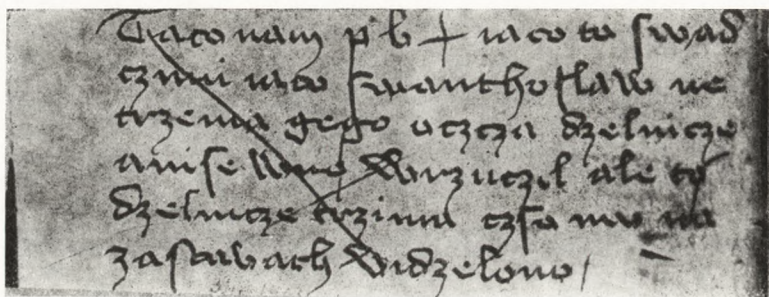 Taco nam p b + iaco to swad
czimi iaco Swanthoslaw ne
trzema gego oczcza dzelnicze
anise w ne Wrzuczil ale to
dzelnicze trzima czso mu na
zastawach Widzelono